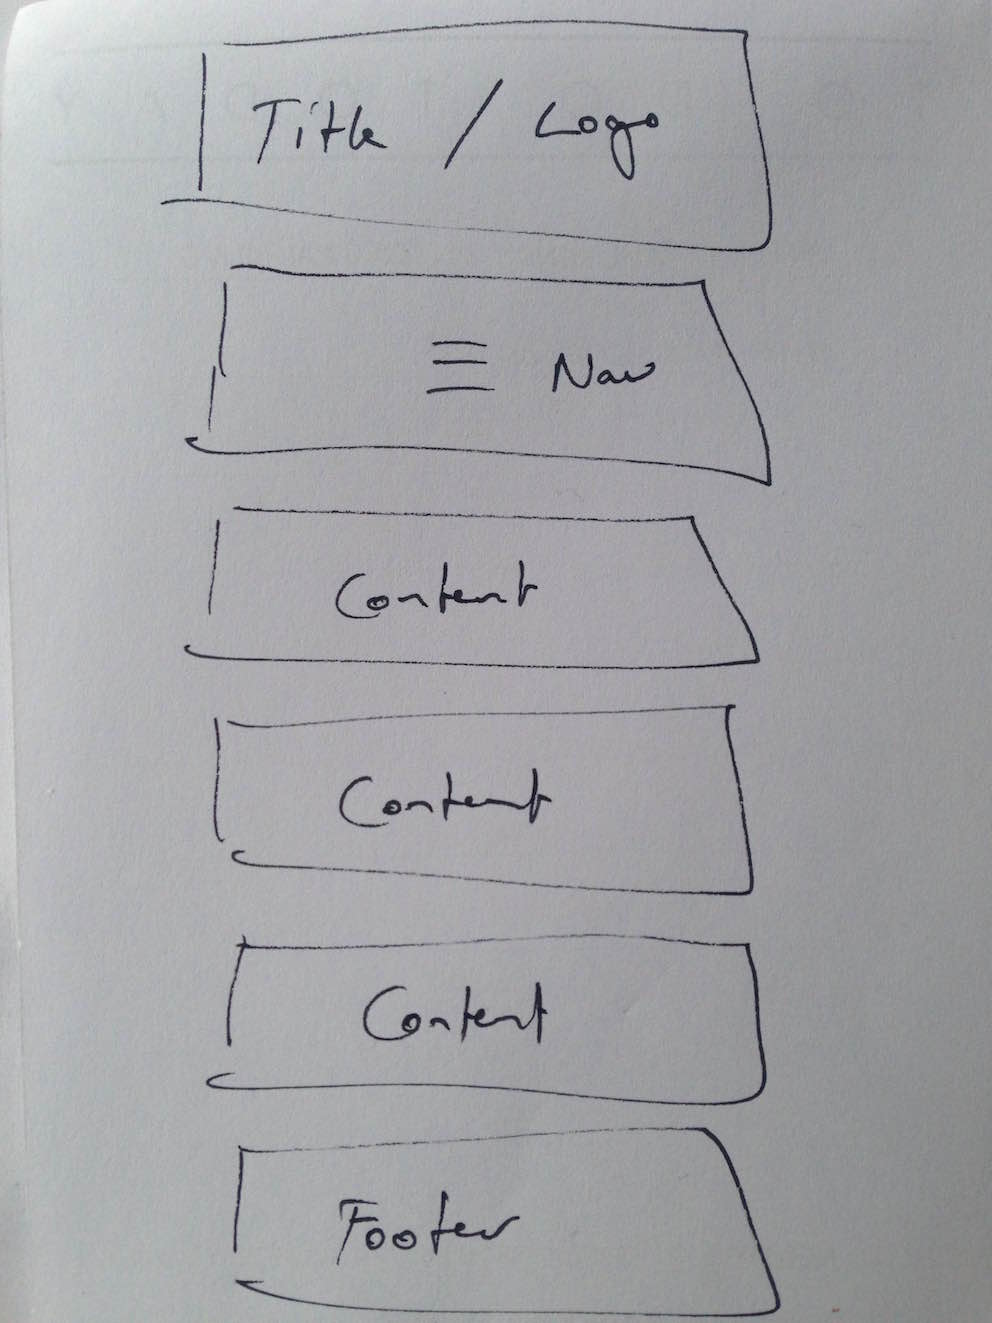 Title / Logo
Nav
Content
Content
Content
Footer